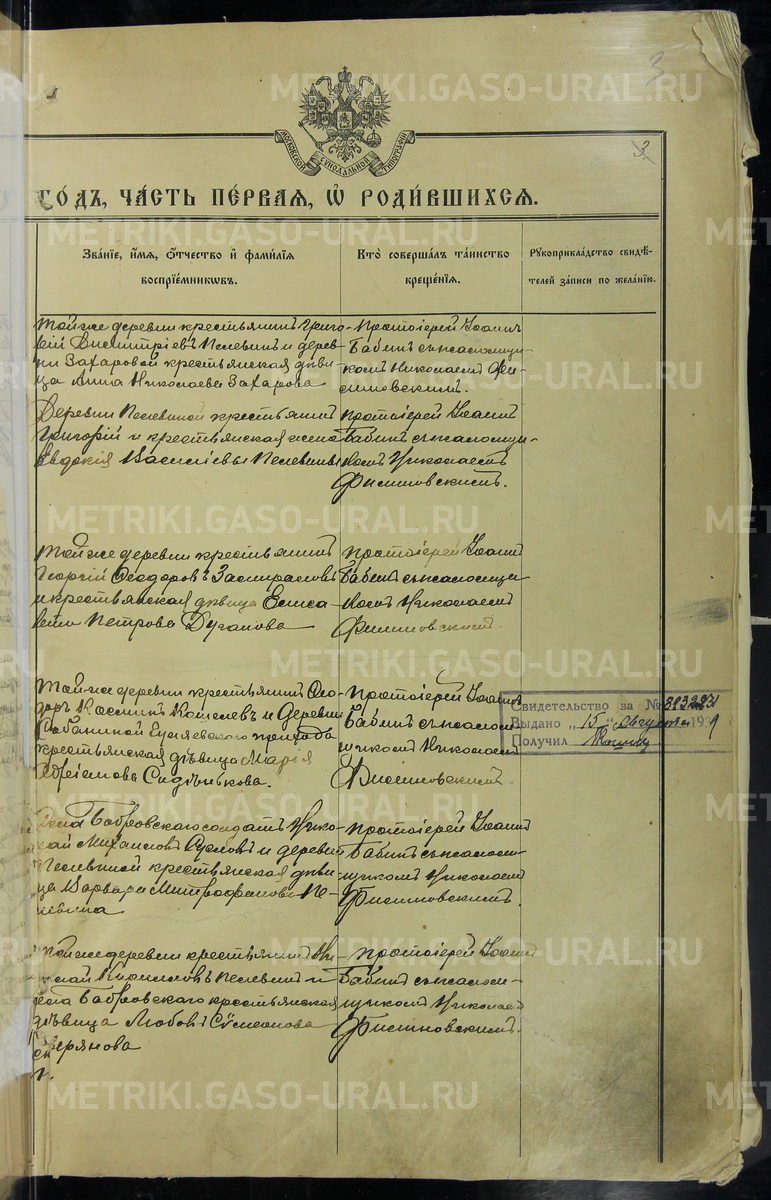 3
3
МОСКОВСКОЙ СѴНОДАЛЬНОЙ ТИПОГРАФІИ
го́дъ, ча́сть пе́рвая, ѡ҆ роди́вшихся.
Зва́нїе, и҆́мя, ѻ҆́тчество и҆ фами́лїя
воспрїе́мникѡвъ.
Кто̀ соверша́лъ та́инство
креще́нїя.
Рꙋкоприкла́дство свидѣ́-
телей за́писи по жела́нїю.
Той же деревни крестьянинъ Григо-
рій Димитріевъ Пелевинъ и дерев-
ни Захаровой крестьянская дѣви-
ца Анна Николаева Захарова
Протоіерей Іоаннъ
Бабинъ съ псаломщи-
комъ Николаемъ Фи-
линовскимъ.
Деревни Пелевиной крестьянинъ
Григорій и крестьянская жена
Евдокія Васильевы Пелевины
Протоіерей Іоаннъ
Бабинъ съ псаломщи-
комъ Николаемъ
Филиновскимъ.
Той же деревни крестьянинъ
Георгій Ѳеодоровъ
и крестьянская дѣвица Елиса-
вета Петрова Дуганова
Протоіерей Іоаннъ
Бабинъ съ псаломщи
комъ Николаемъ
Филиновскимъ.
Той же деревни крестьянинъ Ѳео-
доръ Косминъ Кошелевъ и Деревни
прихода
крестьянская дѣвица Марія
Сидѣнькова.
Протоіерей Іоаннъ
Бабинъ съ псалом
щикомъ Николаемъ
Филиновскимъ.
Свидетельство за № 813223
Выдано „15" Августа 19
Получил
Села Бобровскаго солдатъ Нико-
лай Михаиловъ Сусловъ и деревни
Пелевиной крестьянская дѣви-
ца Варвара Митрофанова Пе-
левина
Протоіерей Іоаннъ
Бабинъ съ псалом-
щикомъ Николаемъ
Филиновскимъ.
Той же деревни крестьянинъ Ни-
колай Кириловъ Пелевинъ и
села Бобровскаго крестьянская
дѣвица Любовь Сѵмеонова
Аверянова
Протоіерей Іоаннъ
Бабинъ съ псалом-
щикомъ Николаемъ
Филиновскимъ.
METRIKI.GASO-URAL.RU
METRIKI.GASO-URAL.RU
METRIKI.GASO-URAL.RU
METRIKI.GASO-URAL.RU
METRIKI.GASO-URAL.RU
METRIKI.GASO-URAL.RU
METRIKI.GASO-URAL.RU
METRIKI.GASO-URAL.RU